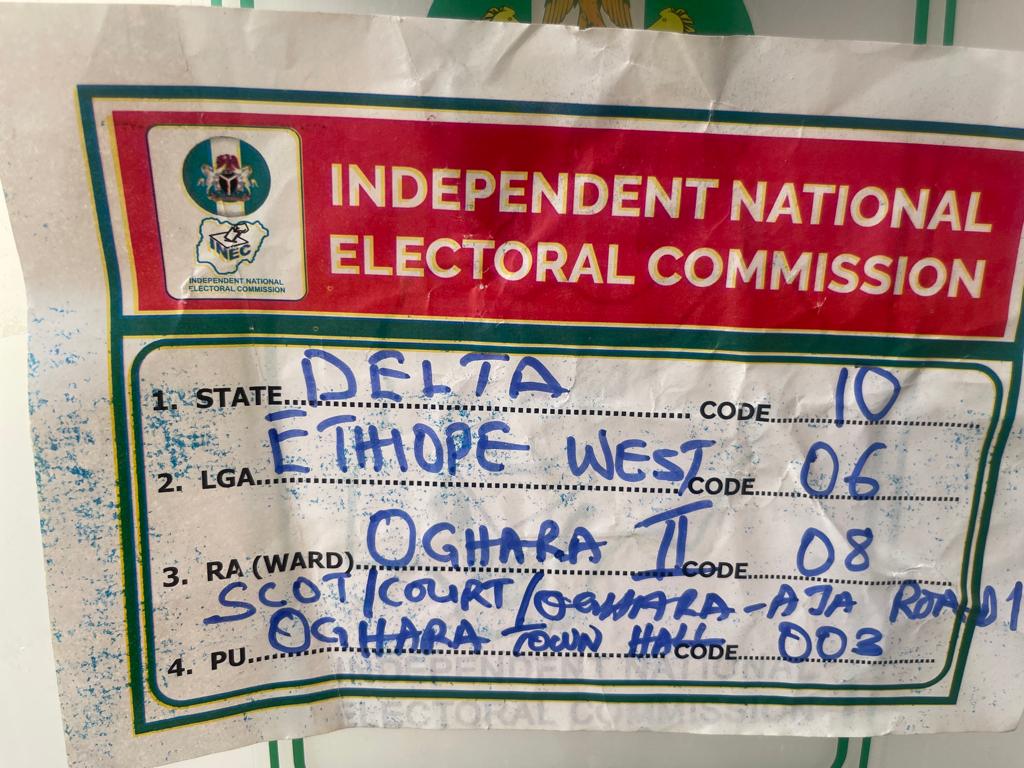 INEC
INDEPENDENT NATIONAL
ELECTORAL COMMISSION
INDEPENDENT NATIONAL
ELECTORAL COMMISSION
1. STATE DELTA CODE 10
2. LGA ETHIOPE WEST CODE 06
3. RA (WARD) OGHARA II CODE 08
SCOT/COURT/OGHARA-AJA ROAD 1
4. PU OGHARA TOWN HALL CODE 003
INDEPENDENT NATIONAL
ELECTORAL COMMISSION